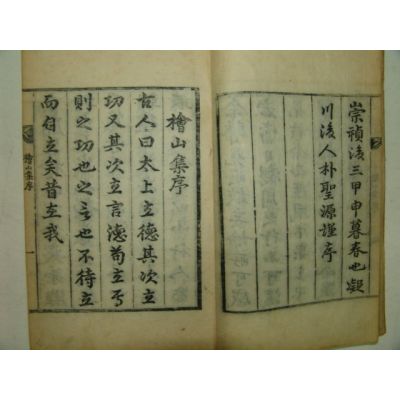 崇禎後三甲申暮春也凝
川後人朴聖源謹序
檜山集序
古人曰太上立德其次立
功又其次立言德苟立焉
則之功也之言也不待立
而自立矣昔在我
檜山集序 一